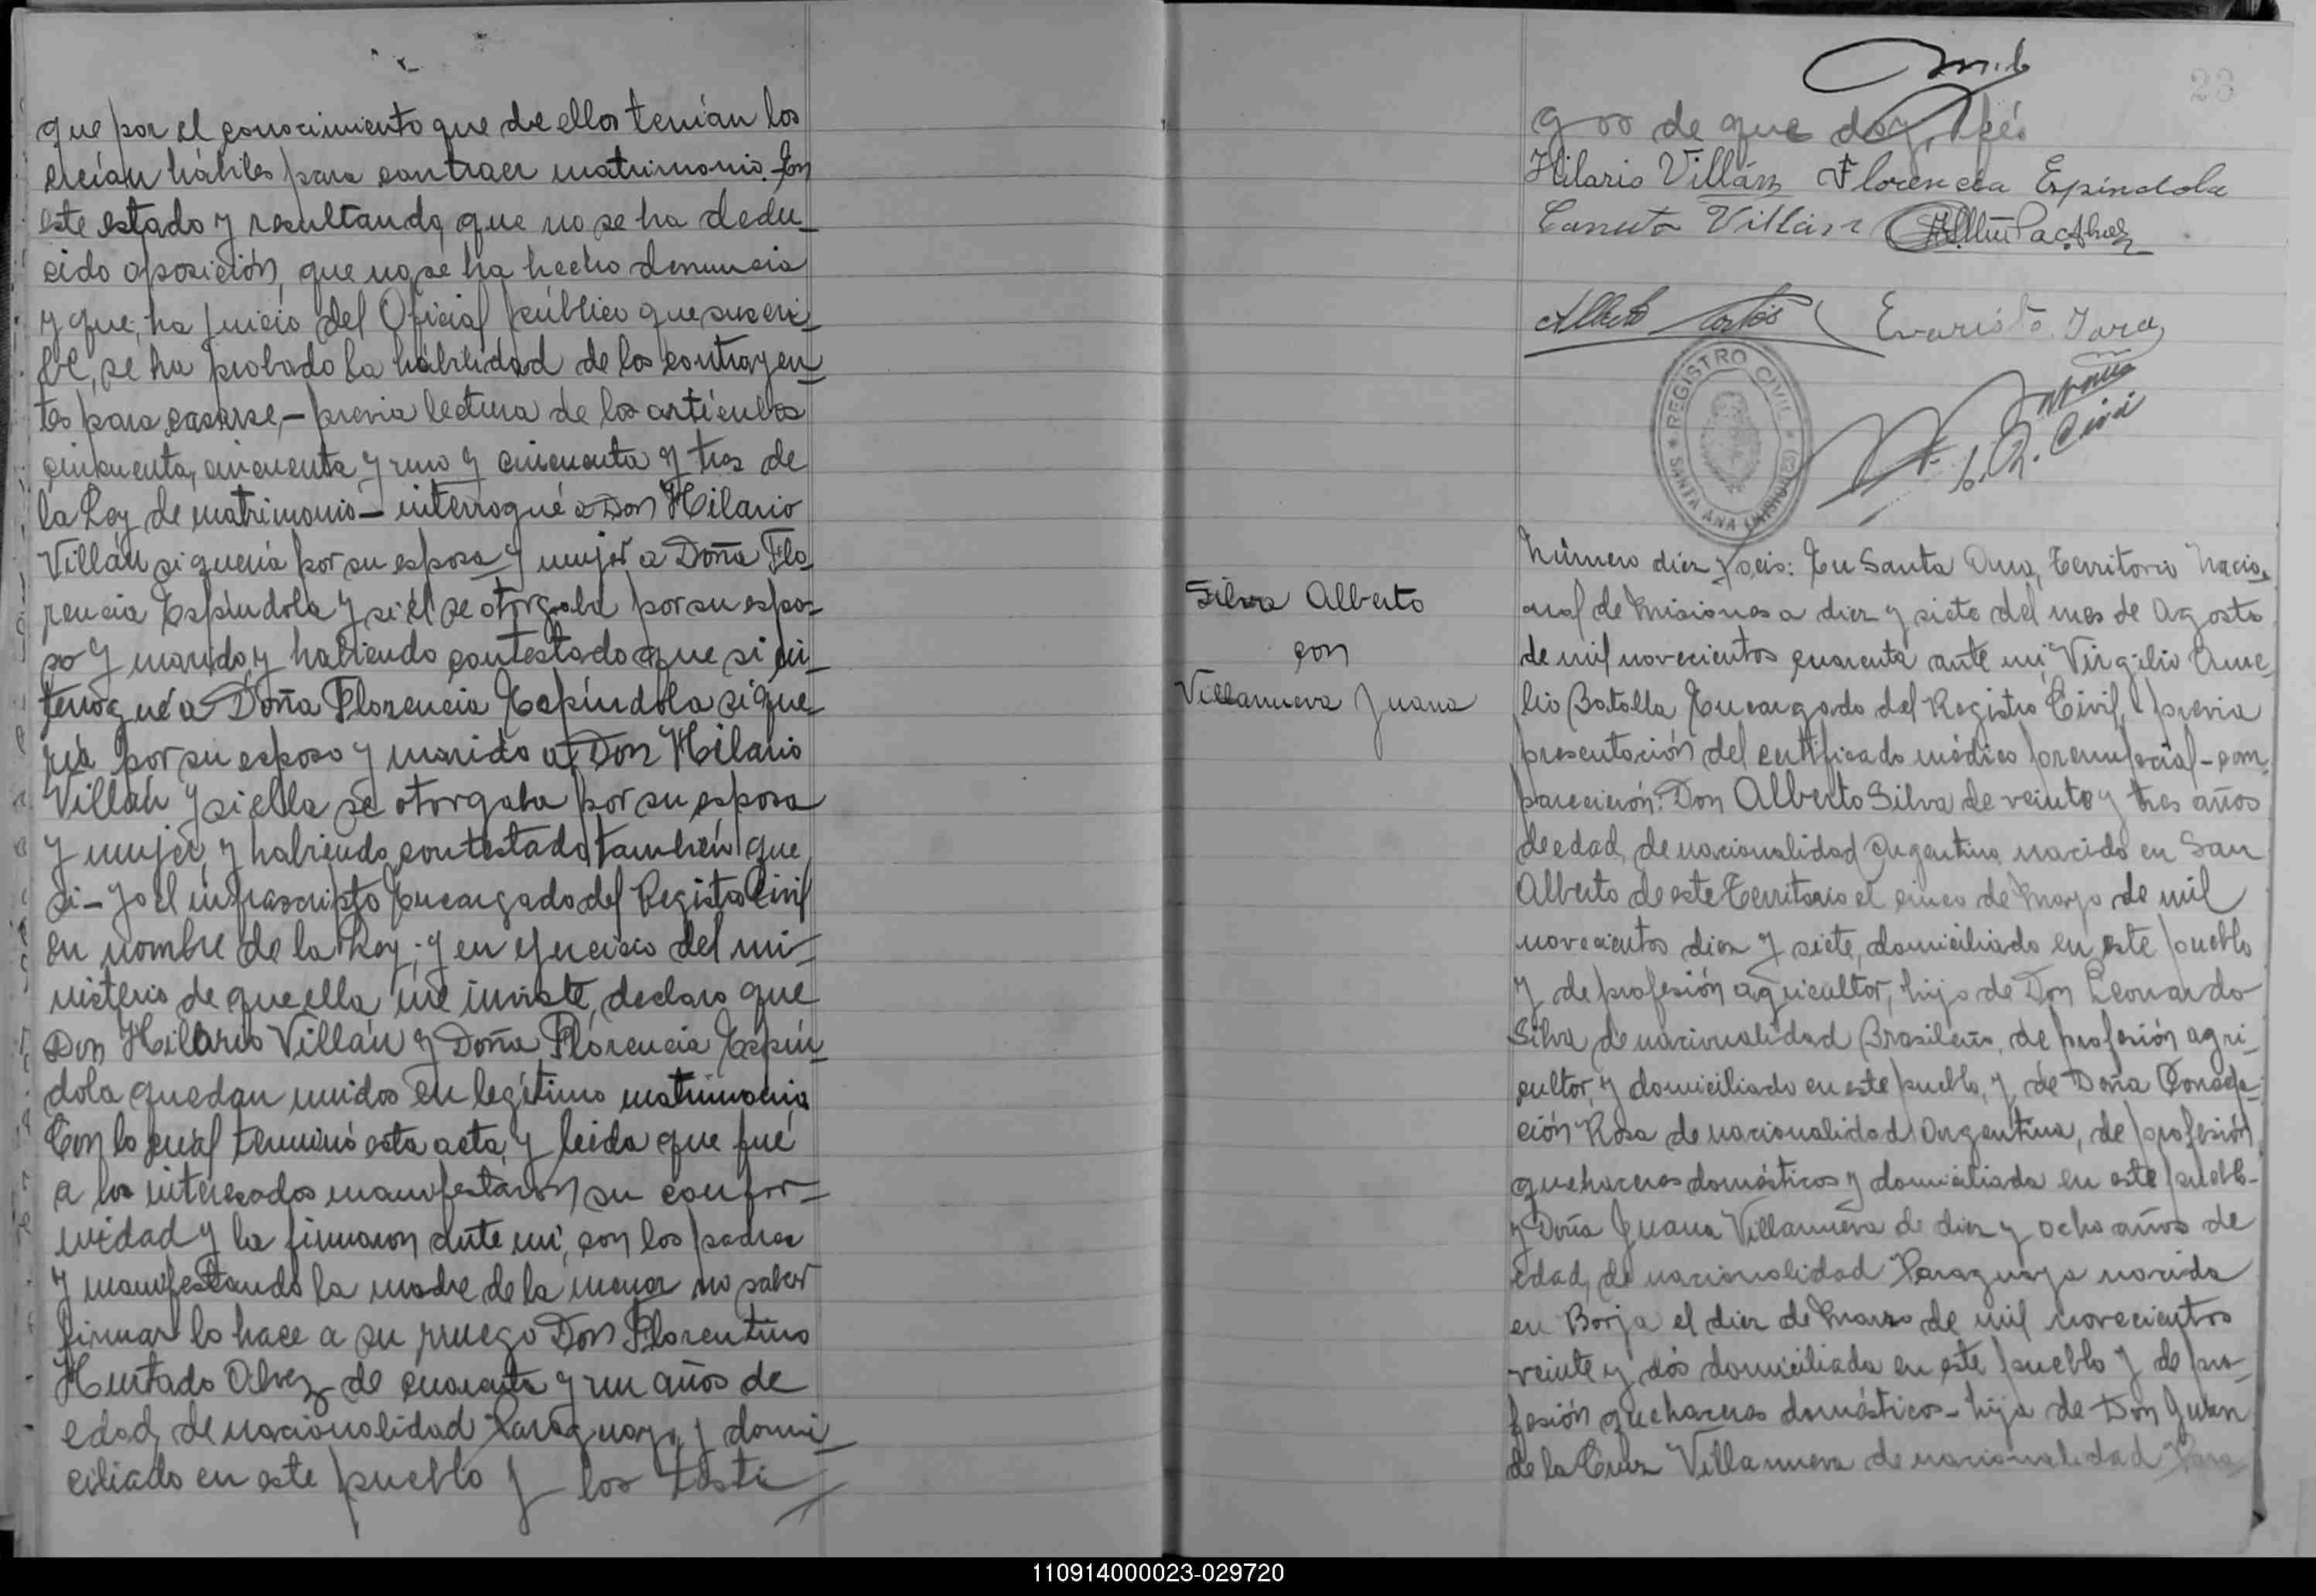 que por el conocimiento que de ellos tenían los
creían hábiles para contraer matrimonio. En
este estado y resultando que no se ha dedu_
cido oposición, que no se ha hecho denuncia
y que, ha juicio del Oficial público que suscri_
be, se ha probado la habilidad de los contrayen_
tes para casarse,— previa lectura de los artículos
cincuenta, cincuenta y uno y cincuenta y tres de
la Ley de matrimonio— interrogué a Don Hilario
Villán si quería por su esposa y mujer a Doña Flo_
rencia Espíndola y si él se otorgaba por su espo_
so y marido, y habiendo contestado que si in_
terrogué a Doña Florencia Espíndola si que_
ría por su esposo y marido a Don Hilario
Villán y si ella se otorgaba por su esposa
y mujer, y habiendo contestado también que
si— Yo el infrascripto Encargado del Registro Civil
en nombre de la Ley; y en ejercicio del mi_
nisterio de que ella me inviste, declaro que
Don Hilario Villán y Doña Florencia Espín_
dola quedan unidos en legítimo matrimonio
Con lo cual terminó esta acta, y leida que fué
a los interesados manifestaron su confor_
midad y la firmaron ante mi, con los padres
y manifestando la madre de la menor no saber
firmar lo hace a su ruego Don Florentino
Hurtado Alvez de cuarenta y un años de
edad, de nacionalidad Paraguayo, y domi_
ciliado en este pueblo y los testi
23
gos de que doy fé.
Hilario Villán Florencia Espindola
Canuto Villan
Alberto Cortés Evaristo Jara
REGISTRO CIVIL
SANTA ANA (MISIONES)
R. Civil
Silva Alberto
con
Villanueva Juana
Número diez y seis: En Santa Ana, Territorio Nacio_
nal de Misiones a diez y siete del mes de Agosto
de mil novecientos cuarenta ante mi, Virgilio Ame_
lio Botalla Encargado del Registro Civil, previa
presentación del certificado médico prenupcial — com_
parecieron: Don Alberto Silva de veinte y tres años
de edad, de nacionalidad Argentina nacido en San
Alberto de este Territorio el cinco de Mayo de mil
novecientos diez y siete, domiciliado en este pueblo
y de profesión agricultor, hijo de Don Leonardo
Silva de nacionalidad Brasileño, de profesión agri_
cultor, y domiciliado en este pueblo, y de Doña
Rosa de nacionalidad Argentina, de profesión
quehaceres domésticos y domiciliada en este pueblo—
y Doña Juana Villanueva de diez y ocho años de
edad, de nacionalidad Paraguaya nacida
en Borja el diez de Marzo de mil novecientos
veinte y dós domiciliada en este pueblo y de pro_
fesión quehaceres domésticos— hija de Don Juan
de la Cruz Villanueva de nacionalidad Para
110914000023-029720